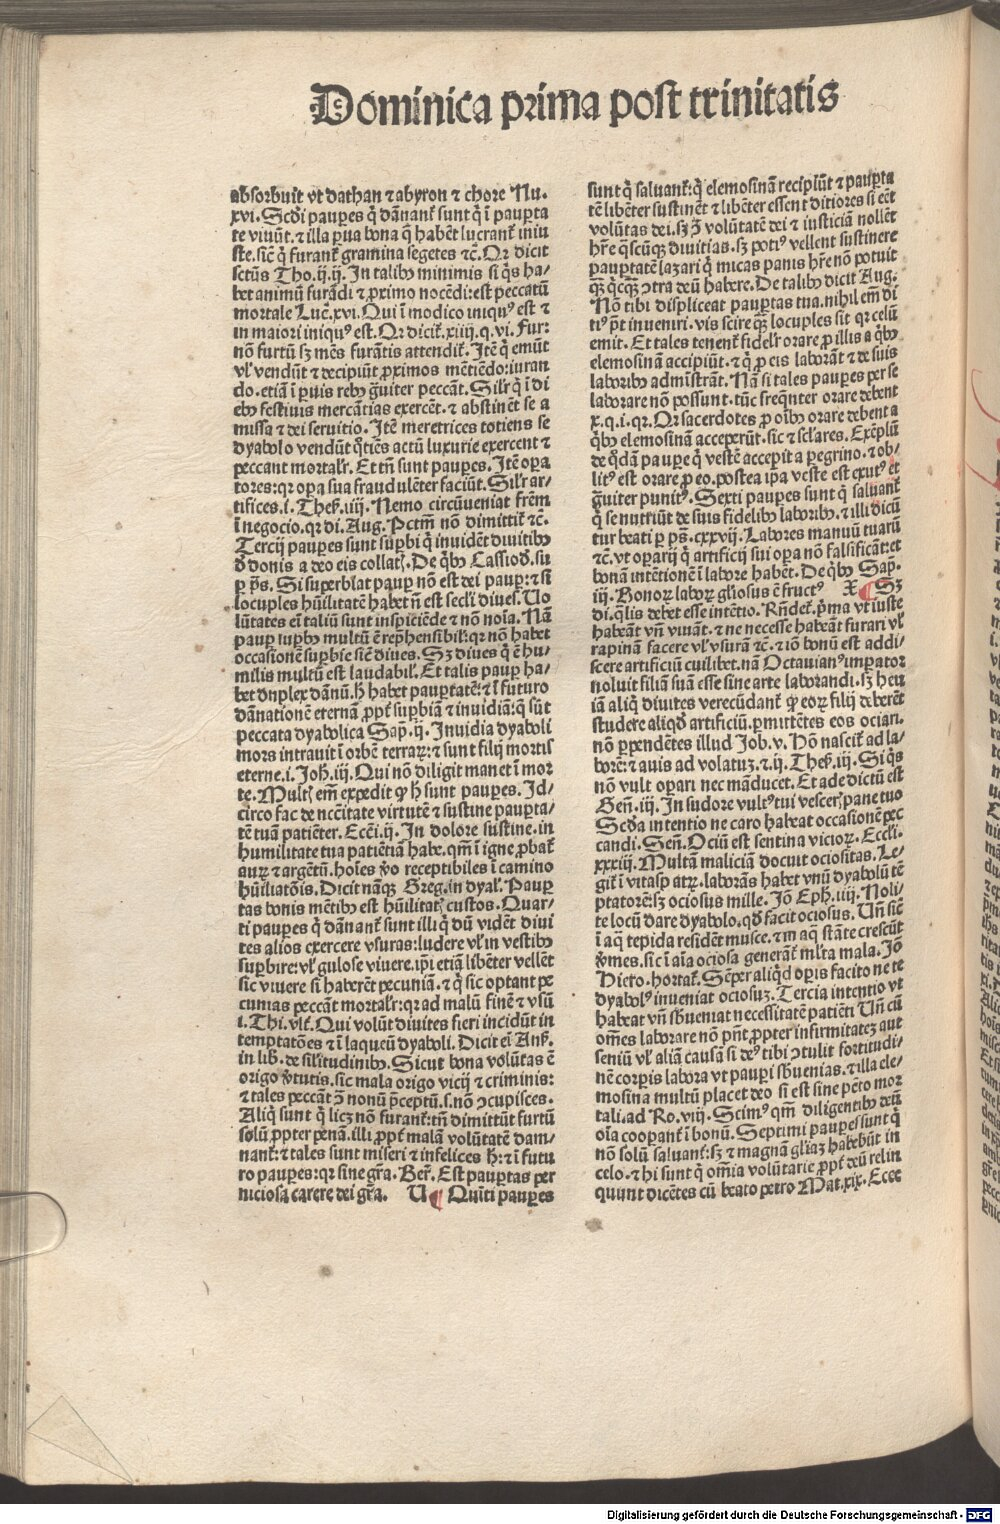 Dominica prima post trinitatis
absorbuit vt dathan ⁊ abyron ⁊ chore Nu.
xvi. Scďi pauꝑes q̇ dãnant̃ sunt q̇ ĩ pauꝑta
te viuũt. ⁊ illa ꝑua bona q̃ habẽt lucrant̃ iniu
ste. siẽ q̇ furant̃ gramina segetes ⁊c̃. Qr̃ dicit
sctũs Tho. ij. ij. In talibꝰ minimis si q̇s ha⸗
bet animũ furãdi ⁊ ꝓximo nocẽdi: est peccatũ
mortale Luc̃. xvi. Qui ĩ modico iniquꝰ est ⁊
in maiori iniquꝰ est. Qr̃ dicit̃. xiiij. q. vi. Fur:
nõ furtũ sꝫ mẽs furãtis attendit̃. Itẽ q̇ emũt
vl̃ vendũt ⁊ decipiũt ꝓximos mẽtiẽdo: iuran
do. etiã ĩ ꝑuis rebꝰ g̃uiter peccãt. Sil̃r q̇ ĩ di
ebꝰ festiuis mercãtias exercẽt. ⁊ abstinẽt se a
missa ⁊ dei seruitio. Itẽ meretrices totiens se
dyabolo vendũt q̇tiẽs actũ luxurie exercent ⁊
peccant mortal̃r. Et tñ sunt pauꝑes. Itẽ oꝑa
tores: qr oꝑa sua fraudulẽter faciũt. Sil̃r ar⸗
tifices. i. Thes̃. iiij. Nemo circũueniat frẽm
ĩ negocio. qr di. Aug. Pctm̃ nõ dimittit̃ ⁊c̃.
Tercij pauꝑes sunt suꝑbi q̇ inuidẽt diuitibꝰ
ď donis a deo eis collatꝭ. De q̇bꝰ Cassiod. su
ꝑ p̃s. Si suꝑbꝰ lat pauꝑ nõ est dei pauꝑ: ⁊ si
locuples hũilitatẽ habet ñ est secl̃i diues. Uo
lũtates eñ taliũ sunt inspiciẽde ⁊ nõ noĩa. Nã
pauꝑ suꝑbꝰ multũ ẽ rep̃hensibil̃: qr nõ habet
occasionẽ suꝑbie siẽ diues. Sꝫ diues q̇ ẽ hu⸗
milis multũ est laudabil̃. Et talis pauꝑ ha⸗
bet duplex dãnũ. hꝭ habet pauꝑtatẽ: ⁊ ĩ futuro
dãnationẽ eternã ꝓpt̃ suꝑbiã ⁊ inuidiã: q̃ sũt
peccata dyabolica Sap̃. ij. Inuidia dyaboli
mors intrauit ĩ orbẽ terraꝝ: ⁊ sunt filij mortis
eterne. i. Joh̃. iij. Qui nõ diligit manet ĩ mor
te. Multꝭ em̃ expedit ꝙ hꝭ sunt pauꝑes. Id⸗
circo fac de ncc̃itate virtutẽ ⁊ sustine pauꝑta⸗
tẽ tuã patiẽter. Ecc̃i. ij. In dolore sustine. in
humilitate tua patiẽtiã habe. qm̃ ĩ igne ꝓbat̃
auꝝ ⁊ argẽtũ. hoĩes ṽo receptibiles ĩ camino
hũiliatõis. Dicit nãqꝫ Greg. in dyal̃. Pauꝑ
tas bonis mẽtibꝰ est hũilitatꝭ custos. Quar⸗
ti pauꝑes q̇ dãnant̃ sunt illi q̇ dũ vidẽt diui
tes alios exercere vsuras: ludere vl̃ in vestibꝰ
suꝑbire: vl̃ gulose viuere. ip̃i etiã libẽter vellẽt
sic viuere si haberẽt pecuniã. ⁊ q̇ sic optant pe
cunias peccãt mortal̃r: qr ad malũ finẽ ⁊ vsũ
i. Thi. vlt̃. Qui volũt diuites fieri incidũt in
temptatões ⁊ ĩ laqueũ dyaboli. Dicit eĩ Ans̃.
in lib̃. de sil̃itudinibꝰ. Sicut bona volũtas ẽ
origo ṽtutis. sic mala origo vicij ⁊ criminis:
⁊ tales peccãt ↄ̃ nonũ p̃ceptũ. s. nõ ↄcupisces.
Aliq̇ sunt q̇ licꝫ nõ furant̃: tñ dimittũt furtũ
solũ ꝓpter penã. illi ꝓpt̃ malã volũtatẽ dam⸗
nant̃: ⁊ tales sunt miseri ⁊ infelices hꝭ: ⁊ ĩ futu
ro pauꝑes: qr sine gr̃a. Ber̃. Est pauꝑtas per
niciosa carere dei gr̃a. U ¶ Quĩti pauꝑes
sunt q̇ saluant̃: q̇ elemosinã recipiũt ⁊ pauꝑta
tẽ libẽter sustinẽt ⁊ libẽter essent ditiores si eẽt
volũtas dei. sꝫ ↄ̃ volũtatẽ dei ⁊ iusticiã nollẽt
hr̃e q̃scũqꝫ diuitias. sꝫ potiꝰ vellent sustinere
pauꝑtatẽ lazari q̇ micas panis hr̃e nõ potuit
qꝫ̃ q̇cq̃ꝫ ↄtra deũ habere. De talibꝰ dicit Aug.
Nõ tibi displiceat pauꝑtas tua. nihil em̃ di
tiꝰ p̃t inueniri. vis scire qꝫ̃ locuples sit qr celũ
emit. Et tales tenent̃ fidel̃r orare ꝓ illis a q̇bꝰ
elemosinã accipiũt. ⁊ q̇ ꝓ eis laborãt ⁊ de suis
laboribꝰ admĩstrãt. Nã si tales pauꝑes per se
laborare nõ possunt. tũc freq̃nter orare debent
x. q. i. qr. Qr sacerdotes ꝓ oĩbꝰ orare debent a
q̇bꝰ elemosinã acceperũt. sic ⁊ scl̃ares. Exẽplũ
de q̇dã pauꝑe q̇ vestẽ accepit a ꝑegrino. ⁊ ob⸗
litꝰ est orare ꝓ eo. postea ip̃a veste est exutꝰ et
g̃uiter punitꝰ. Sexti pauꝑes sunt q̇ saluant̃
q̇ se nutriũt de suis fidelibꝰ laboribꝰ. ⁊ illi dicũ
tur beati ꝑ ps̃. cxxvij. Labores manuũ tuarũ
⁊c̃. vt oꝑarij q̇ artificij sui oꝑa nõ falsificãt: et
bonã intẽtionẽ ĩ labore habẽt. De q̇bꝰ Sap̃.
iij. Bonoꝝ laboꝝ gl̃iosus ẽ fructꝰ X ¶ Sꝫ
di. q̃lis debet esse intẽtio. Rñdet̃. p̃ma vt iuste
habeãt vñ viuãt. ⁊ ne necesse habeãt furari vl̃
rapinã facere vl̃ vsurã ⁊c̃. ⁊ iõ bonũ est addi⸗
scere artificiũ cuilibet. nã Octauianꝰ imꝑator
noluit filiã suã esse sine arte laborandi. sꝫ heu
iã aliq̇ diuites verecũdant̃ ꝙ eoꝝ filij deberẽt
studere aliqď artificiũ. ꝑmittẽtes eos ociari.
nõ ꝑpendẽtes illud Job. v. Hõ nascit̃ ad la⸗
borẽ: ⁊ auis ad volatuꝫ. ⁊. ij. Thes̃. iij. Si q̇s
nõ vult oꝑari nec mãducet. Et ade dictũ est
Gen̄. iij. In sudore vultꝰ tui vescerꝭ pane tuo
Scďa intentio ne caro habeat occasionẽ pec
candi. Sen̄. Ociũ est sentina vicioꝝ. Eccl̃i.
xxxiij. Multã maliciã docuit ociositas. Le⸗
git̃ ĩ vitasp̃ atꝝ. laborãs habet vnũ dyabolũ tẽ
ptatorẽ: sꝫ ociosus mille. Jõ Eph̃. iiij. Noli⸗
te locũ dare dyabolo. qď facit ociosus. Uñ siẽ
ĩ aq̃ tepida residẽt musce. ⁊ ĩn aq̃ stãte crescũt
ṽmes. sic ĩ aĩa ociosa generãt̃ ml̃ta mala. Jõ
Hiero. hortat̃. Sẽper aliqď oꝑis facito ne te
dyabolꝰ inueniat ociosuꝫ. Tercia intẽtio vt
habeat vñ sb̃ueniat necessitatẽ patiẽti Uñ cũ
oẽs laborare nõ pñt ꝓpter infirmitateꝫ aut
seniũ vl̃ aliã causã si deꝰ tibi ↄtulit fortitudi⸗
nẽ corꝑis labora vt pauꝑi sb̃uenias. ⁊ illa ele⸗
mosina multũ placet deo si est sine pc̃to mor
tali. ad Ro. viij. Scimꝰ qm̃ diligentibꝰ deũ
oĩa cooꝑant̃ ĩ bonũ. Septimi pauꝑes sunt q̇
nõ solũ saluant̃: sꝫ ⁊ magnã gl̃iaꝫ habebũt in
celo. ⁊ hi sunt q̇ om̃ia volũtarie ꝓpt̃ deũ relin
quunt dicẽtes cũ beato petro Mat. xix. Ecce
Digitalisierung gefördert durch die Deutsche Forschungsgemeinschaft - DFG